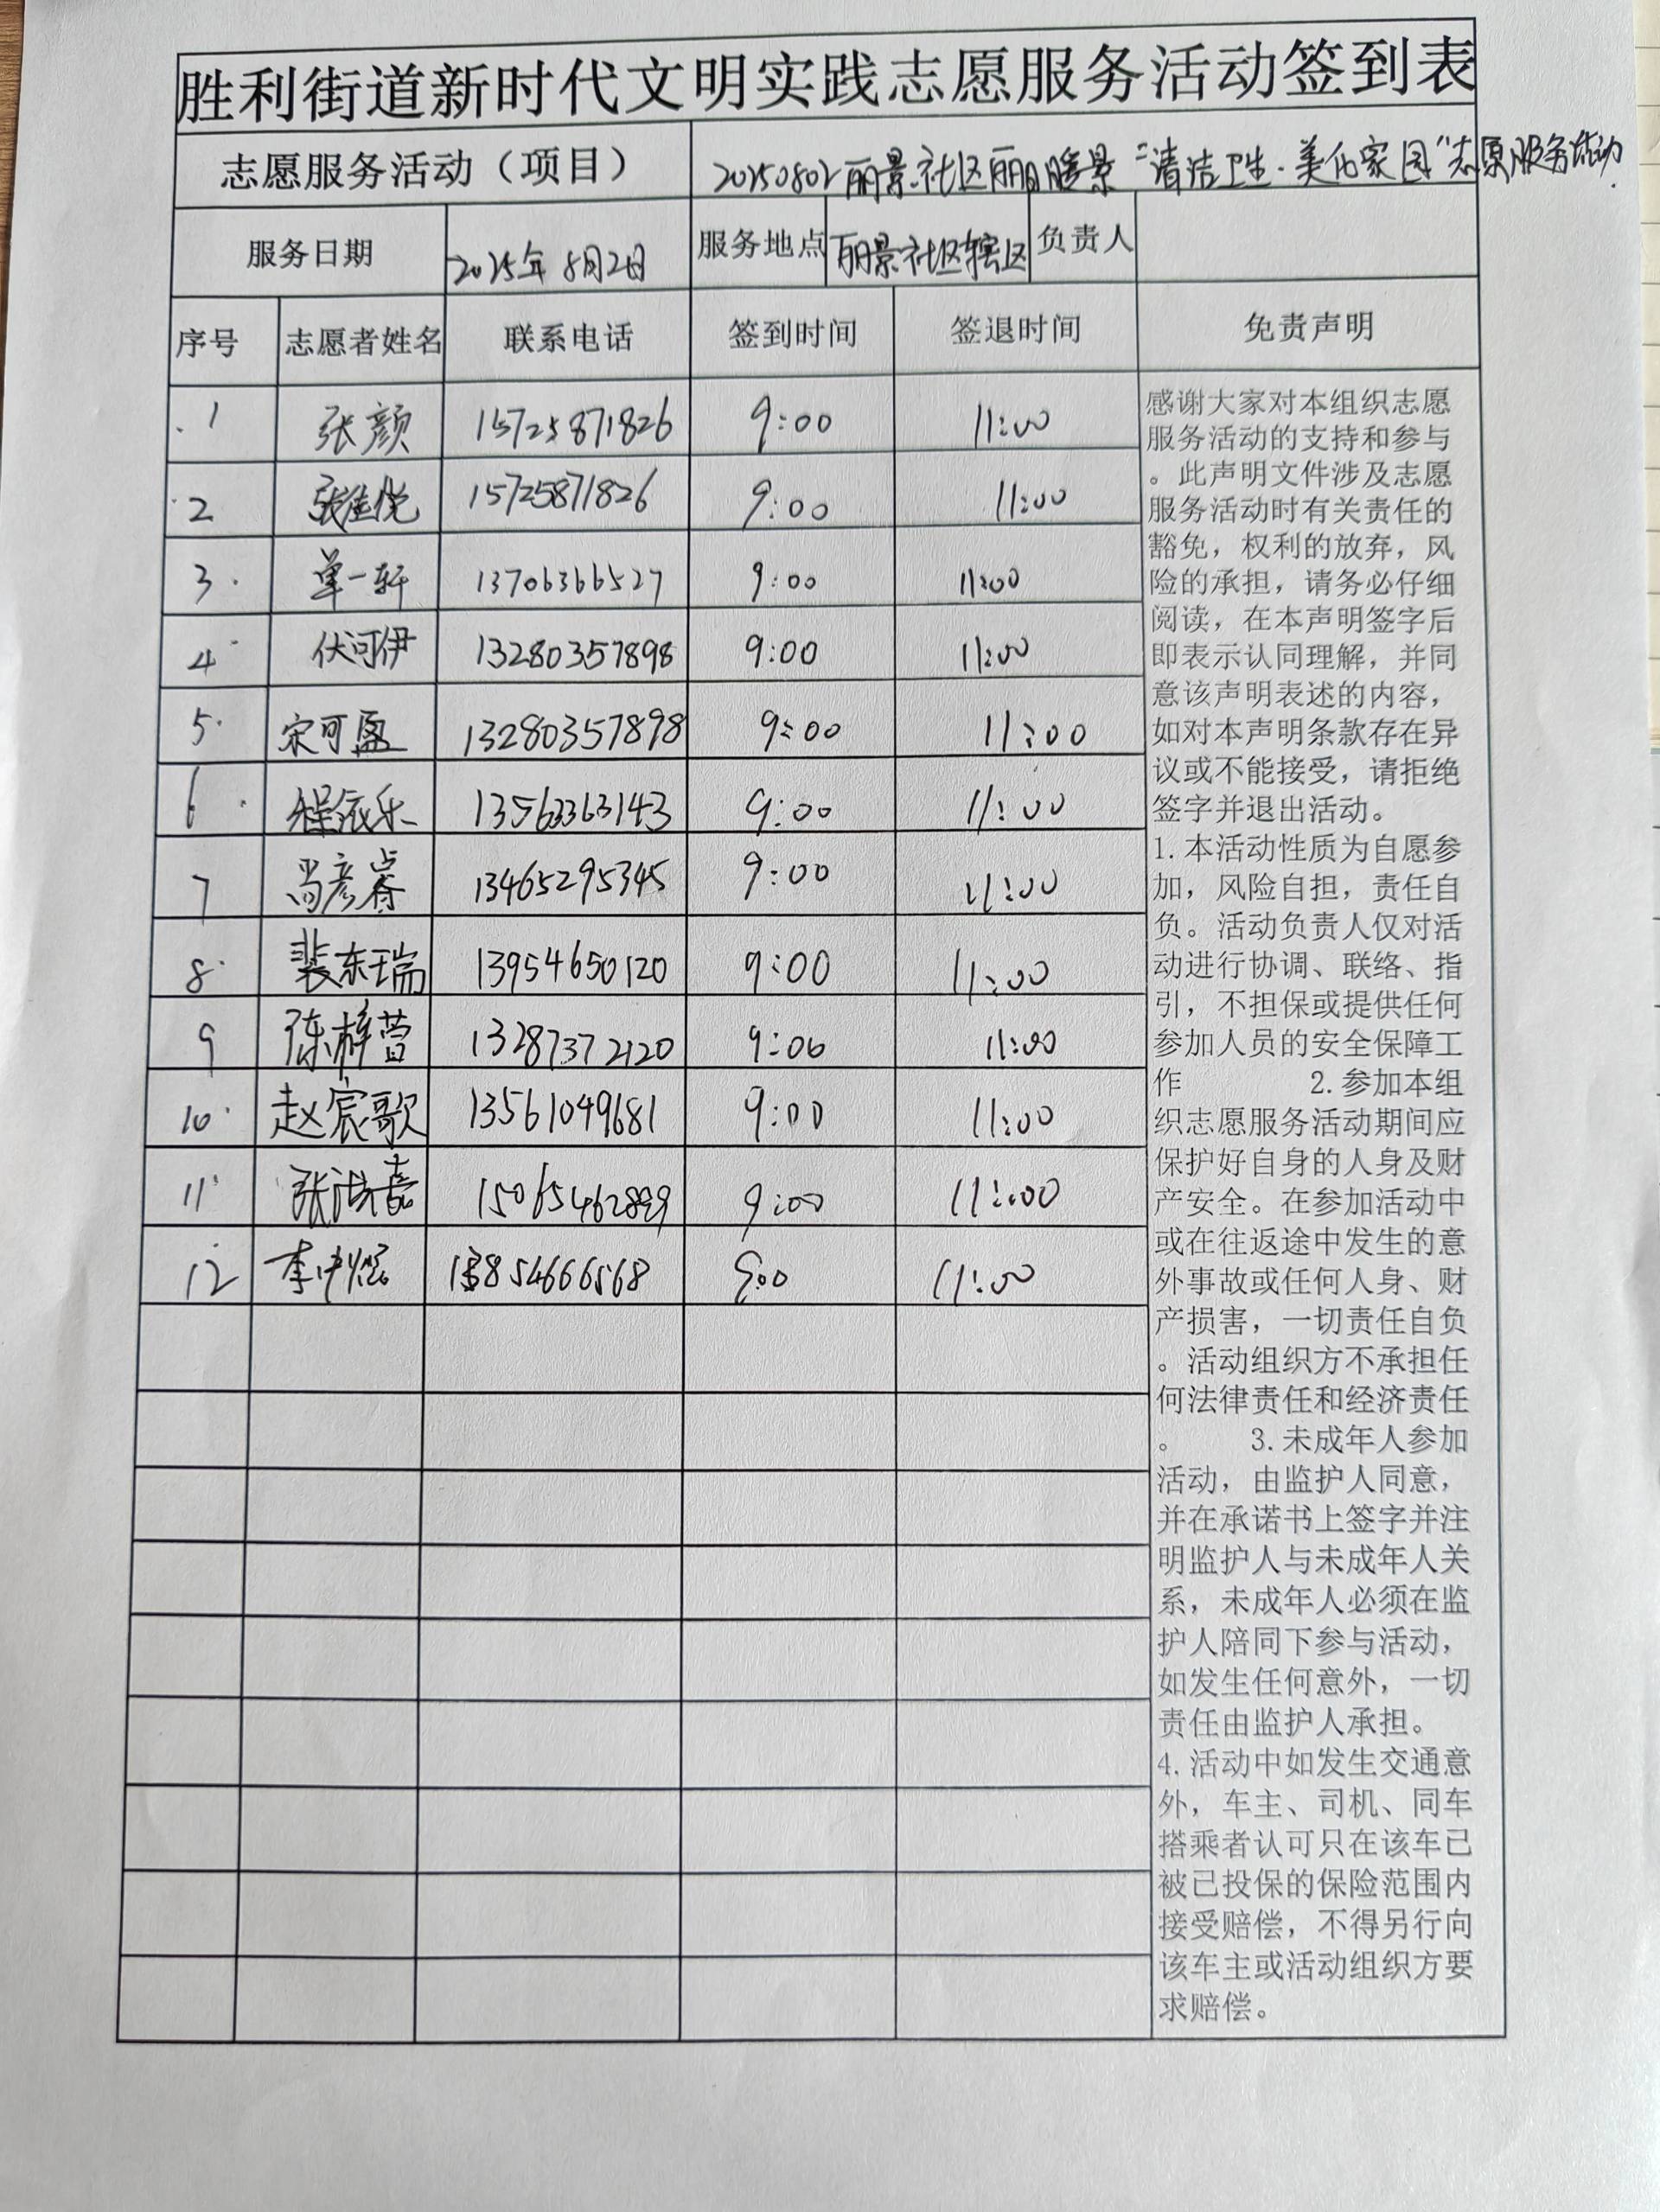 胜利街道新时代文明实践志愿服务活动签到表
志愿服务活动（项目） 20250802丽景社区丽暖景“清洁卫生·美化家园”志愿服务活动
服务日期 2025年8月2日 服务地点 丽景社区辖区 负责人
序号 志愿者姓名 联系电话 签到时间 签退时间 免责声明
1 张颜 15725871826 9:00 11:00
2 张佳悦 15725871826 9:00 11:00
3 单一轩 13706366527 9:00 11:00
4 伏可伊 13280357898 9:00 11:00
5 宋可盈 13280357898 9:00 11:00
6 程依乐 13563363143 9:00 11:00
7 尚彦睿 13465295345 9:00 11:00
8 裴东瑞 13954650120 9:00 11:00
9 陈梓萱 13287372120 9:00 11:00
10 赵宸歌 13561049681 9:00 11:00
11 张洪嘉 15065462899 9:00 11:00
12 李 13854666568 9:00 11:00
感谢大家对本组织志愿
服务活动的支持和参与
。此声明文件涉及志愿
服务活动时有关责任的
豁免，权利的放弃，风
险的承担，请务必仔细
阅读，在本声明签字后
即表示认同理解，并同
意该声明表述的内容，
如对本声明条款存在异
议或不能接受，请拒绝
签字并退出活动。
1.本活动性质为自愿参
加，风险自担，责任自
负。活动负责人仅对活
动进行协调、联络、指
引，不担保或提供任何
参加人员的安全保障工
作 2.参加本组
织志愿服务活动期间应
保护好自身的人身及财
产安全。在参加活动中
或在往返途中发生的意
外事故或任何人身、财
产损害，一切责任自负
。活动组织方不承担任
何法律责任和经济责任
。 3.未成年人参加
活动，由监护人同意，
并在承诺书上签字并注
明监护人与未成年人关
系，未成年人必须在监
护人陪同下参与活动，
如发生任何意外，一切
责任由监护人承担。
4.活动中如发生交通意
外，车主、司机、同车
搭乘者认可只在该车已
被已投保的保险范围内
接受赔偿，不得另行向
该车主或活动组织方要
求赔偿。